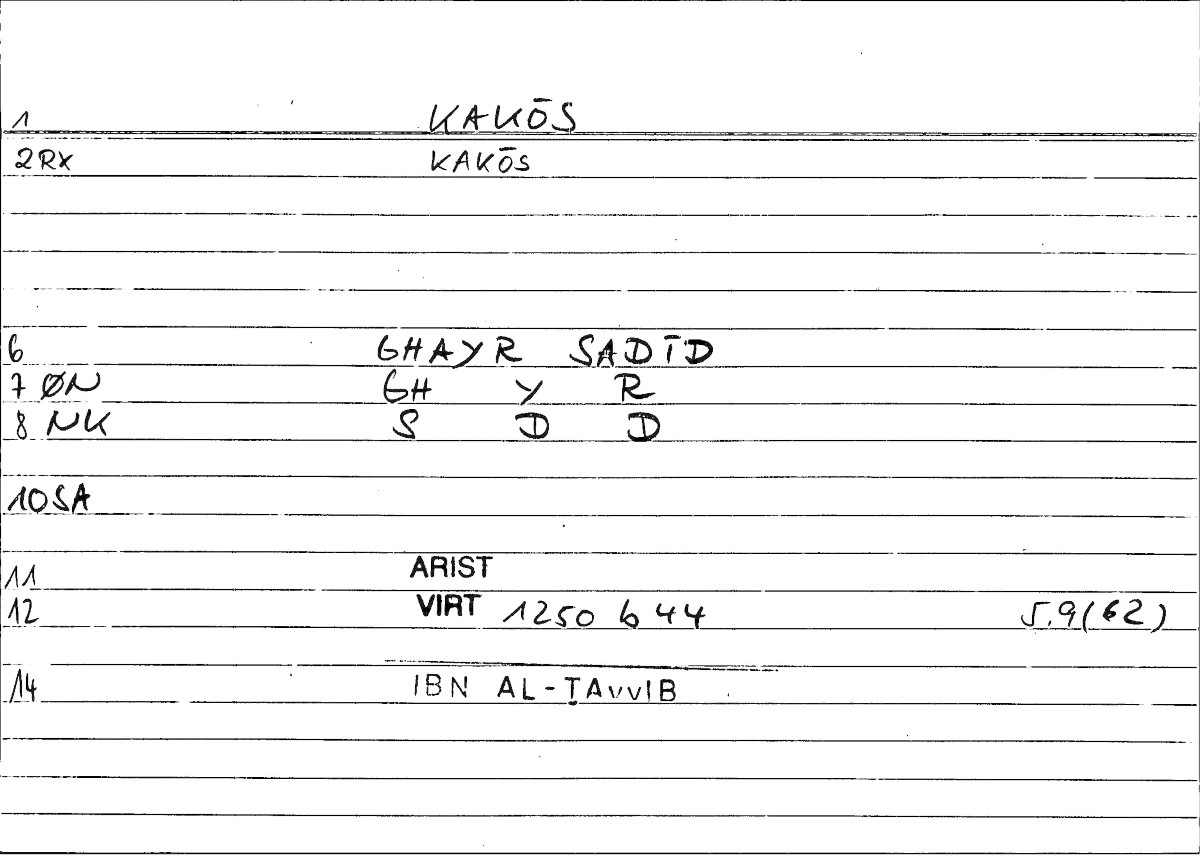 1 KAKŌS
2RX KAKŌS
6 GHAYR SADĪD
7 ØN GH Y R
8 NK S D D
10SA
11 ARIST
12 VIRT 1250 b 44 5.9(62)
14 IBN AL-ṬAvvIB